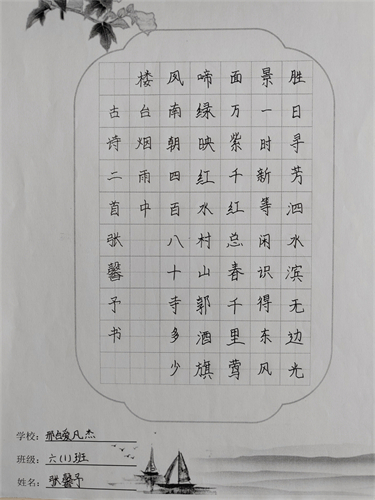 胜日寻芳泗水滨无边光
景一时新等闲识得东风
面万紫千红总春千里莺
啼绿映红水村山郭酒旗
风南朝四百八十寺多少
楼台烟雨中
古诗二首张馨予书
学校：爱凡杰
班级：六(1)班
姓名：张馨予